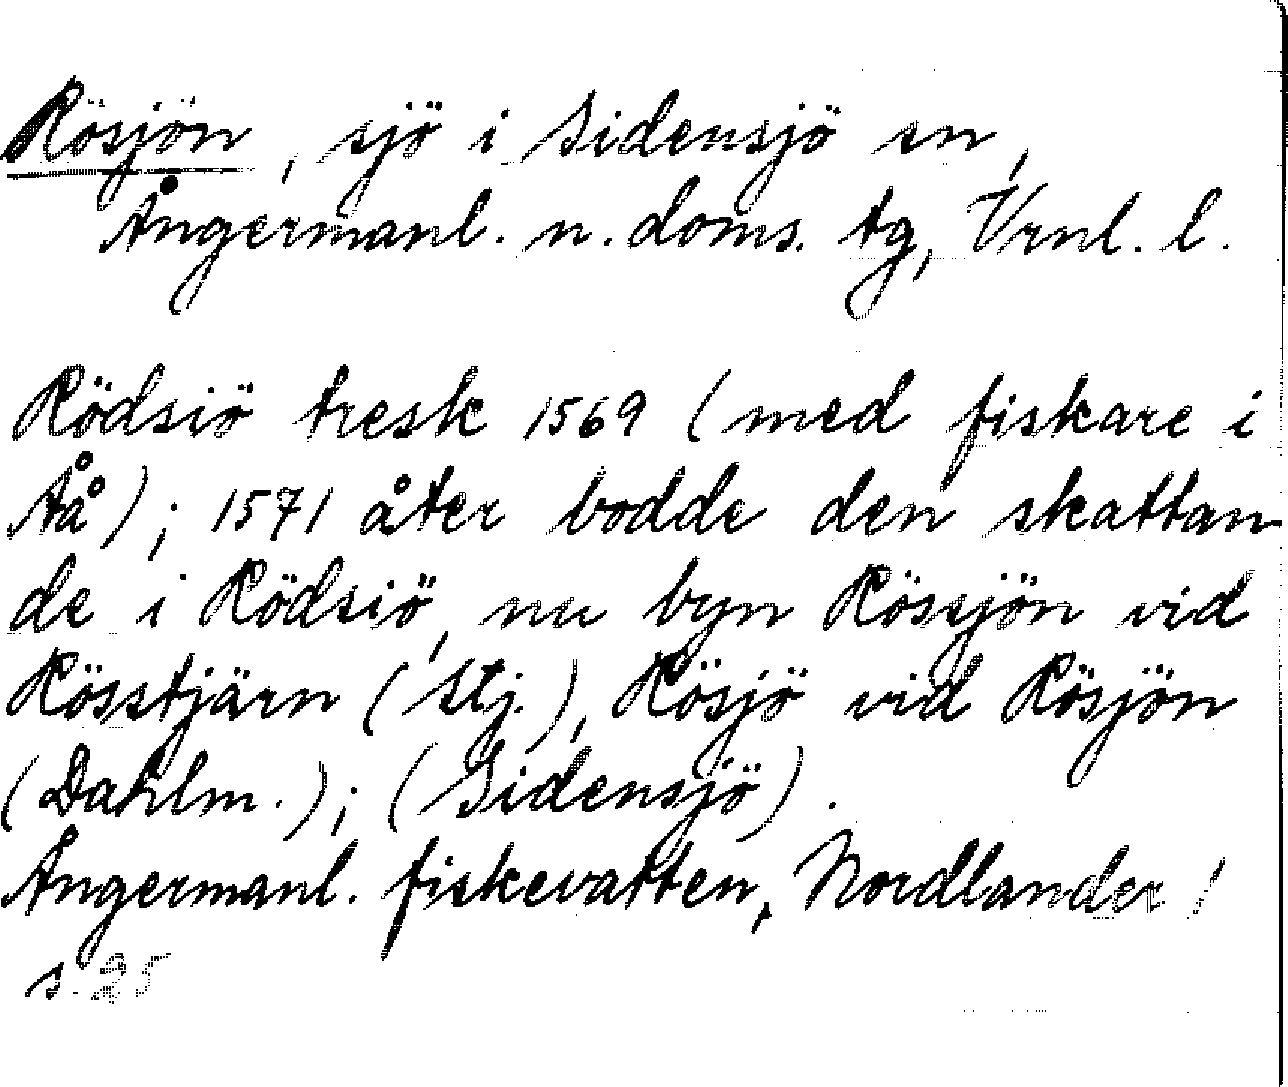 Rösjön, sjö i Sidensjö sn,
Ångermanl. n. doms. tg, Vrnl. l.
Rödsiö tresk 1569 (med fiskare i
Åå); 1571 åter bodde den skattan-
de i Rödsiö, nu byn Rössjön vid
Rösstjärn (Stj.), Rösjö vid Rösjön
(Dahlm.); (Sidensjö).
Ångermanl. fiskevatten, Nordlander
s. 25